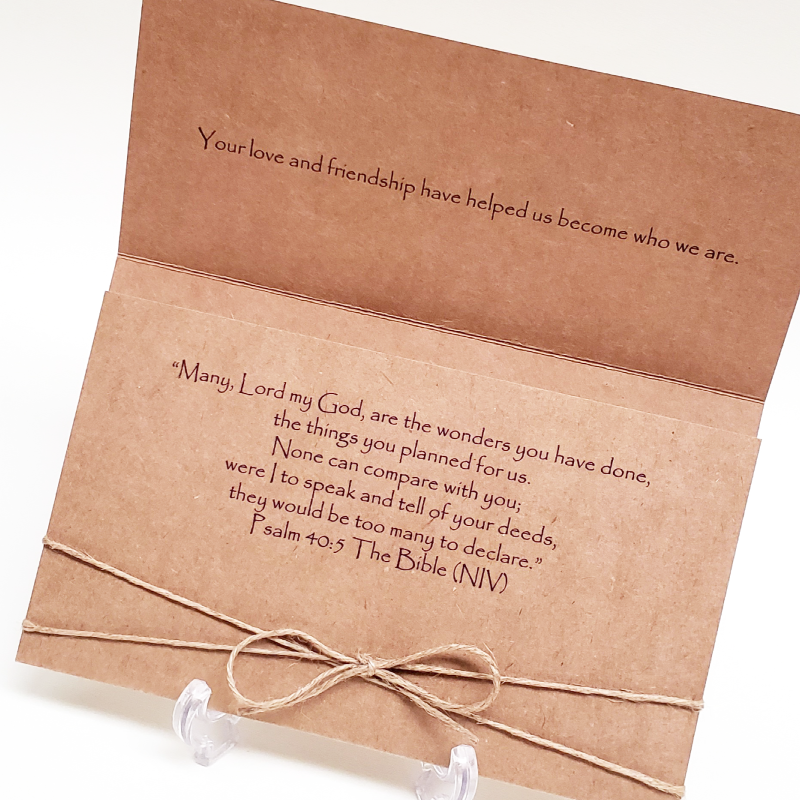 Your love and friendship have helped us become who we are.
“Many, Lord my God, are the wonders you have done,
the things you planned for us.
None can compare with you;
were I to speak and tell of your deeds,
they would be too many to declare.”
Psalm 40:5 The Bible (NIV)